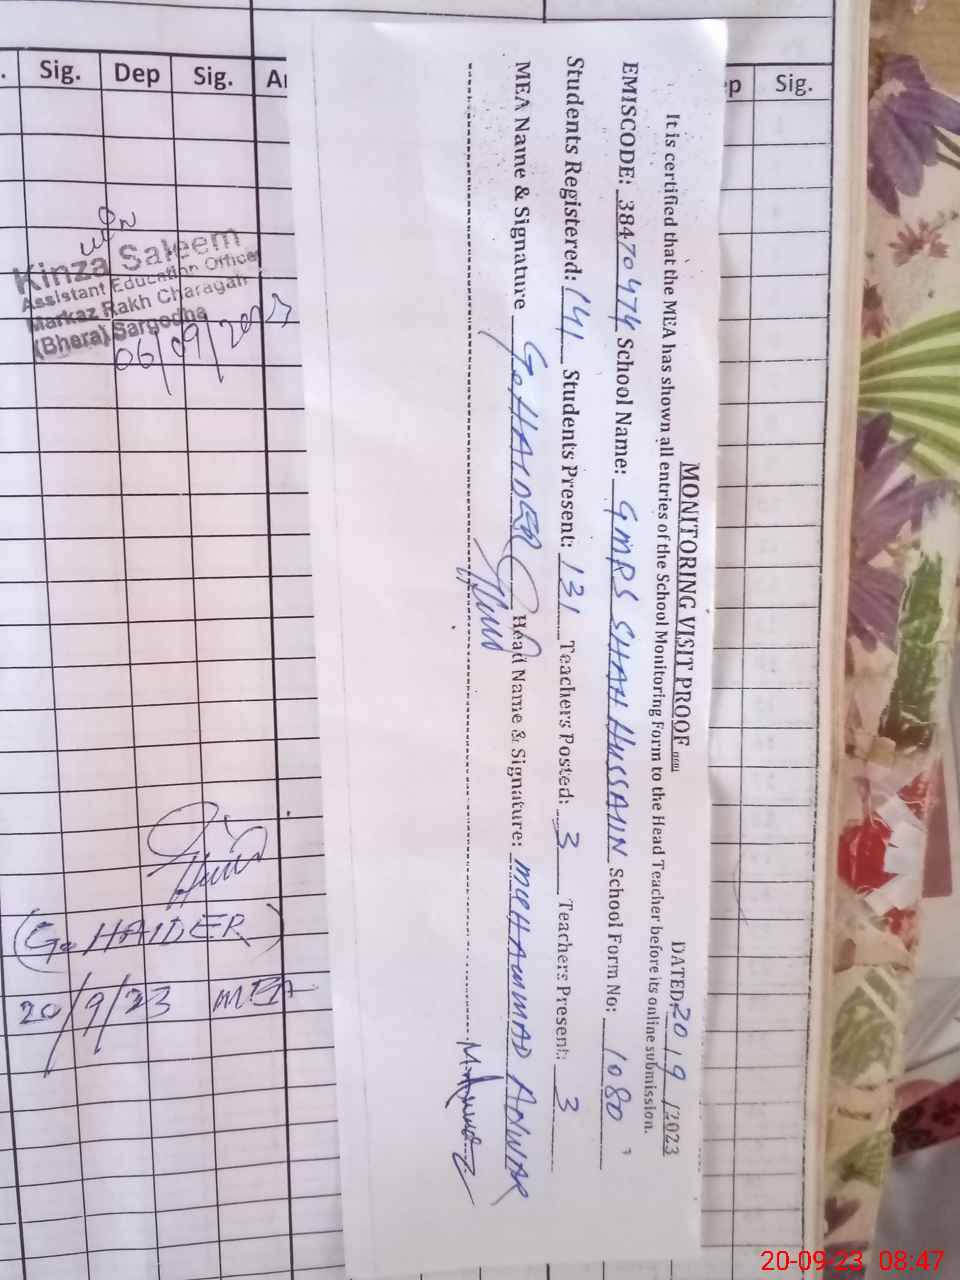 Sig. Dep Sig.
Sig.
MONITORING VISIT PROOF
DATED 20/9/2023
It is certified that the MEA has shown all entries of the School Monitoring Form to the Head Teacher before its online submission.
EMISCODE: 38470474 School Name: GMPS SHAH HUSSAIN School Form No: 1080
Students Registered: 141 Students Present: 131 Teachers Posted: 3 Teachers Present: 3
MEA Name & Signature G. HAIDER Head Name & Signature: MUHAMMAD ANWAR
Kinza Saleem
Assistant Education Officer
Markaz Rakh Charagah
(Bhera) Sargodha
06/09/2023
(G. HAIDER)
20/9/23 MEA
20-09-23 08:47